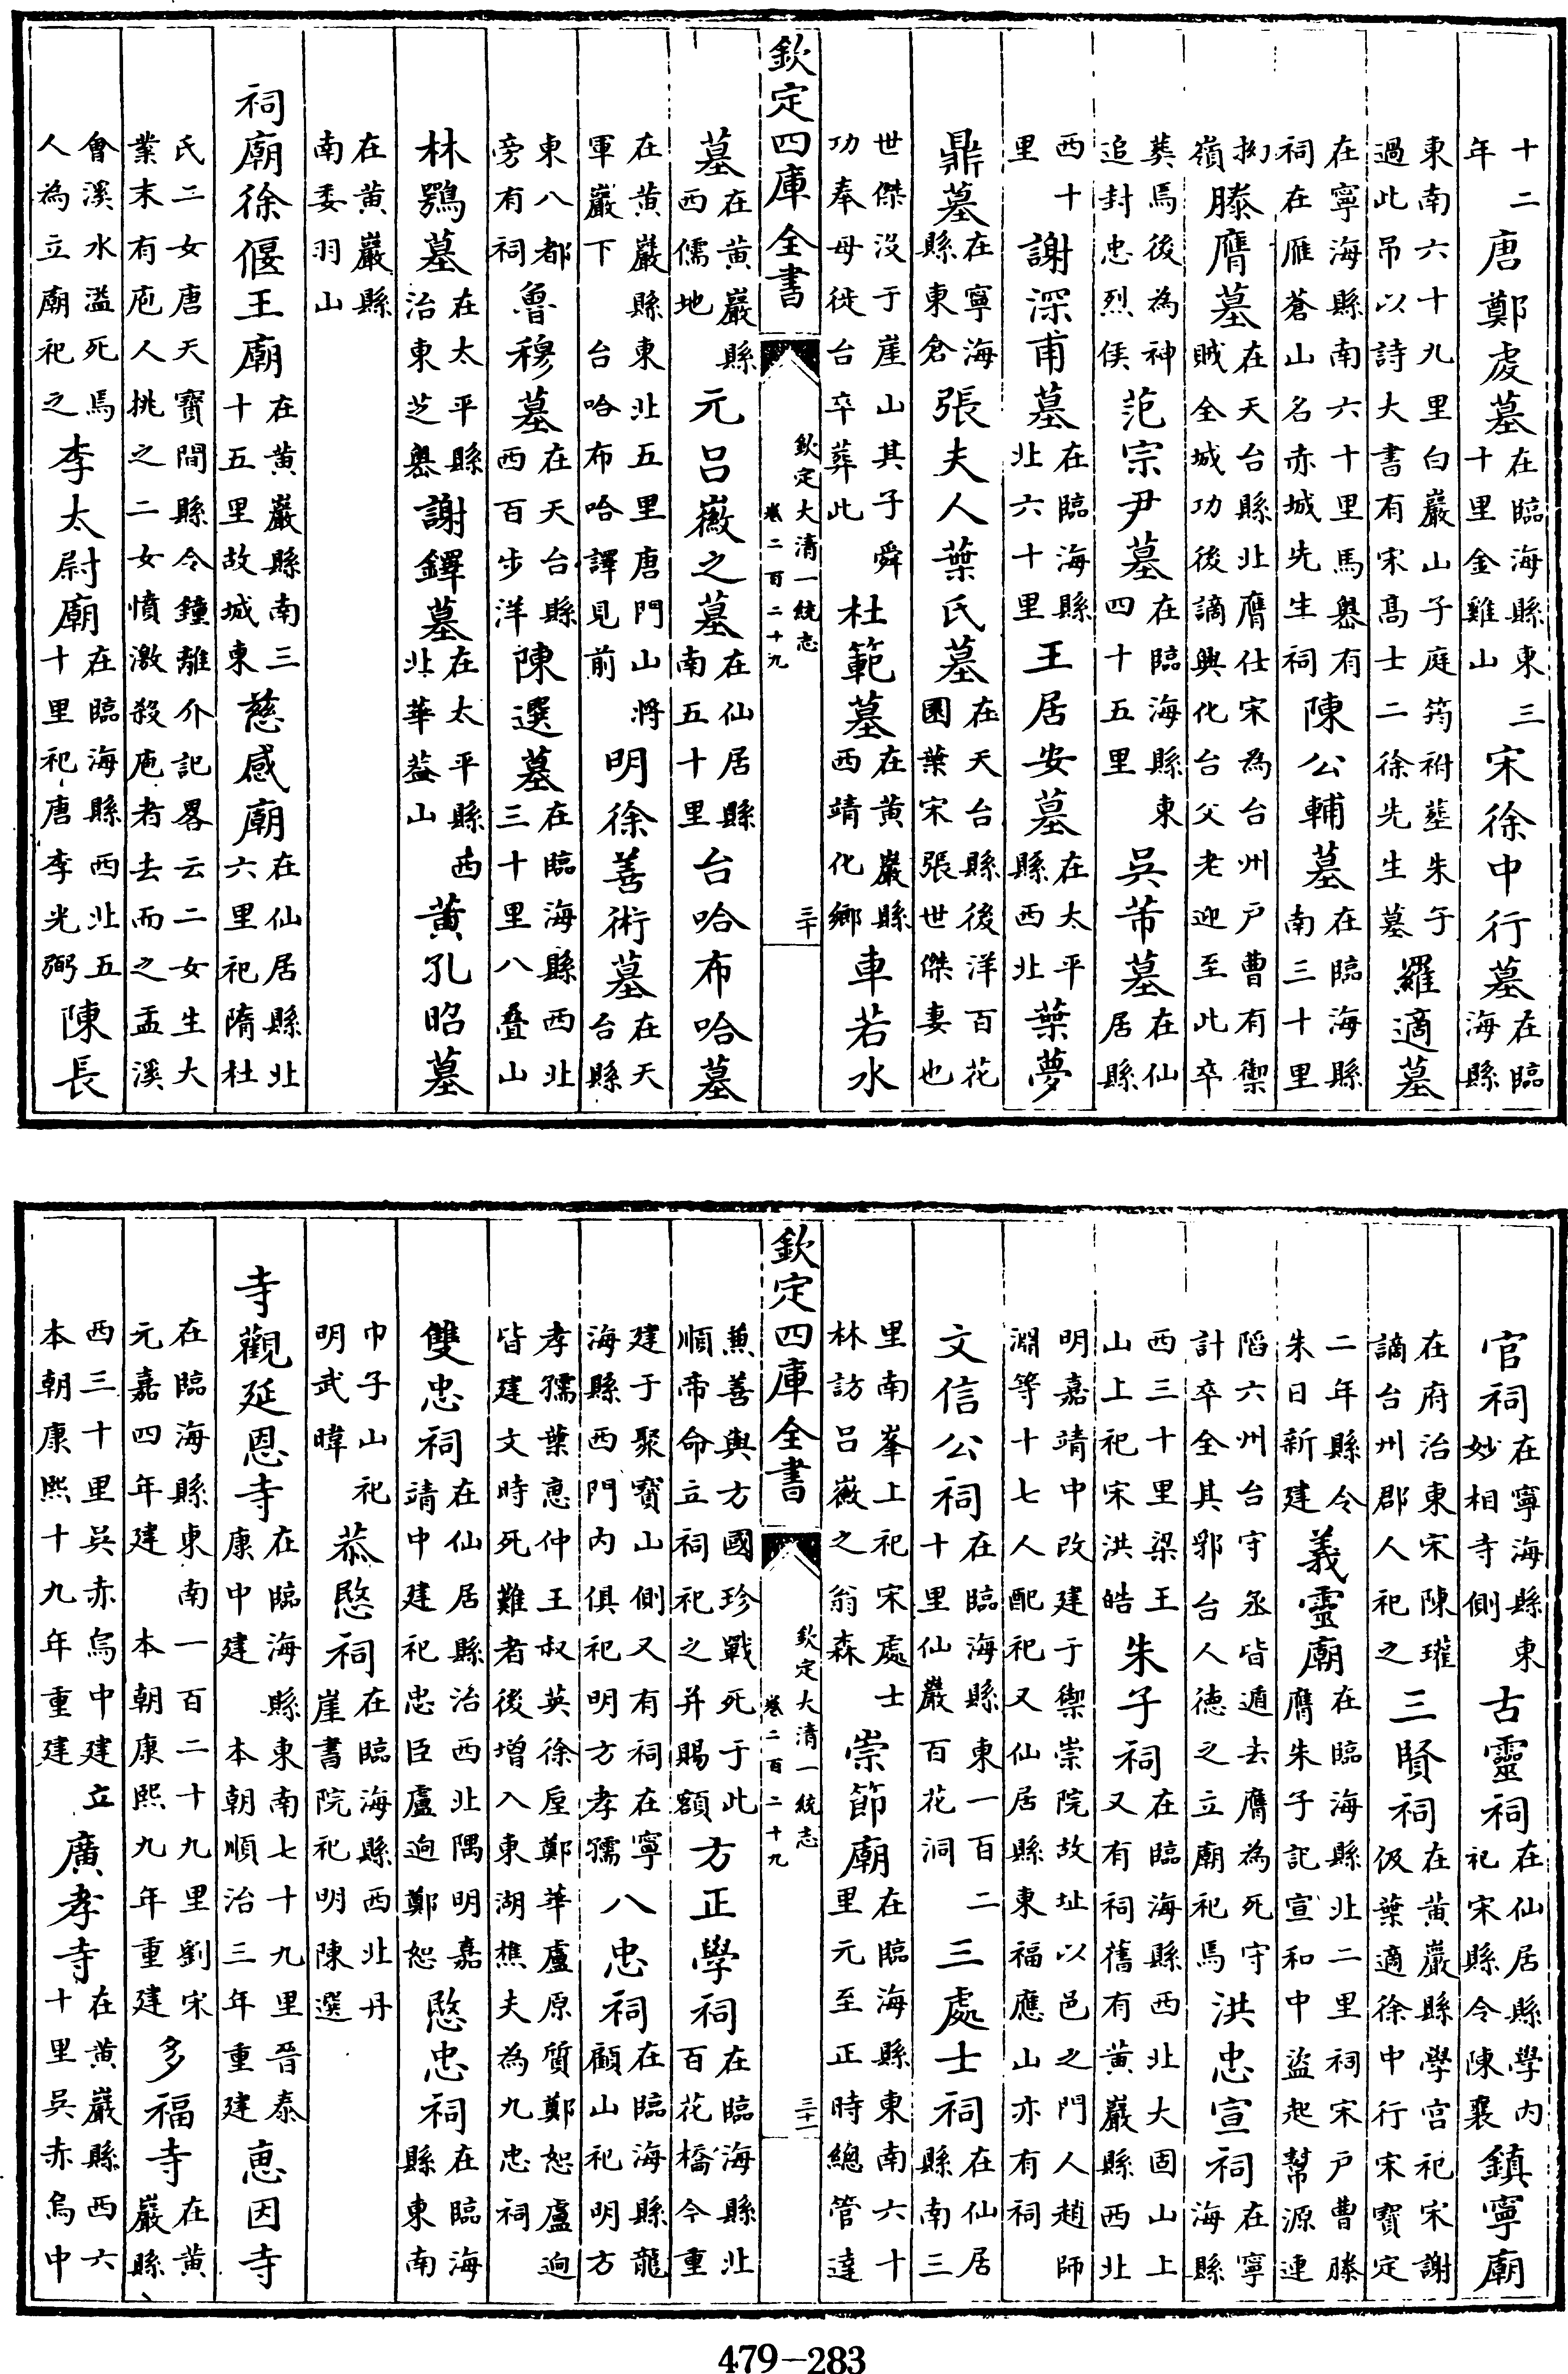 十二年唐鄭虔墓在臨海縣東三十里金雞山宋徐中行墓在臨海縣
東南六十九里白巖山子庭筠祔塟朱子過此吊以詩大書有宋高士二徐先生墓羅適墓
在寧海縣南六十里馬嶴有祠在雁蒼山名赤城先生祠陳公輔墓在臨海縣南三十里
拗嶺滕膺墓在天台縣北膺仕宋為台州戶曹有禦賊全城功後謫興化台父老迎至此卒
葬焉後為神追封忠烈侯范宗尹墓在臨海縣東四十五里吳芾墓在仙居縣
西十里謝深甫墓在臨海縣北六十里王居安墓在太平縣西北葉夢
鼎墓在寧海縣東倉張夫人葉氏墓在天台縣後洋百花園葉宋張世傑妻也
世傑沒于崖山其子舜功奉母徙台卒葬此杜範墓在黃巖縣西靖化鄉車若水
欽定四庫全書
欽定大清一統志
卷二百二十九
三十
墓在黃巖縣西儒地元呂徽之墓在仙居縣南五十里台哈布哈墓
在黃巖縣東北五里唐門山將軍巖下台哈布哈譯見前明徐善術墓在天台縣
東八都旁有祠魯穆墓在天台縣西百步洋陳選墓在臨海縣西北三十里八疊山
林鶚墓在太平縣治東芝嶴謝鐸墓在太平縣西北華蓋山黃孔昭墓
在黃巖縣南委羽山
祠廟徐偃王廟在黃巖縣南三十五里故城東慈感廟在仙居縣北六里祀隋杜
氏二女唐天寶間縣令鐘離介記畧云二女生大業末有庖人挑之二女憤激殺庖者去而之孟溪
會溪水溢死焉人為立廟祀之李太尉廟在臨海縣西北五十里祀唐李光弼陳長
官祠在寧海縣東妙相寺側古靈祠在仙居縣學內祀宋縣令陳襄鎮寧廟
在府治東宋陳瓘謫台州郡人祀之三賢祠在黃巖縣學宮祀宋謝伋葉適徐中行宋寶定
二年縣令朱日新建義靈廟在臨海縣北二里祠宋戶曹滕膺朱子記宣和中盜起幫源連
陷六州台守丞皆遁去膺為死守計卒全其郛台人德之立廟祀焉洪忠宣祠在寧海縣
西三十里梁王山上祀宋洪皓朱子祠在臨海縣西北大固山上又有祠舊有黃巖縣西北
明嘉靖中改建于禦崇院故址以邑之門人趙師淵等十七人配祀又仙居縣東福應山亦有祠
文信公祠在臨海縣東一百二十里仙巖百花洞三處士祠在仙居縣南三
里南峯上祀宋處士林訪呂徽之翁森崇節廟在臨海縣東南六十里元至正時總管達
欽定四庫全書
欽定大清一統志
卷二百二十九
三十一
兼善與方國珍戰死于此順帝命立祠祀之并賜額方正學祠在臨海縣北百花橋今重
建于聚寶山側又有祠在寧海縣西門內俱祀明方孝孺八忠祠在臨海縣龍顧山祀明方
孝孺葉惠仲王叔英徐垕鄭華盧原質鄭恕盧迥皆建文時死難者後增入東湖樵夫為九忠祠
雙忠祠在仙居縣治西北隅明嘉靖中建祀忠臣盧迥鄭恕愍忠祠在臨海縣東南
巾子山祀明武暐恭愍祠在臨海縣西北丹崖書院祀明陳選
寺觀延恩寺在臨海縣東南七十九里晉泰康中建本朝順治三年重建惠因寺
在臨海縣東南一百二十九里劉宋元嘉四年建本朝康熙九年重建多福寺在黃巖縣
西三十里吳赤烏中建立本朝康熙十九年重建廣孝寺在黃巖縣西六十里吳赤烏中
479-283